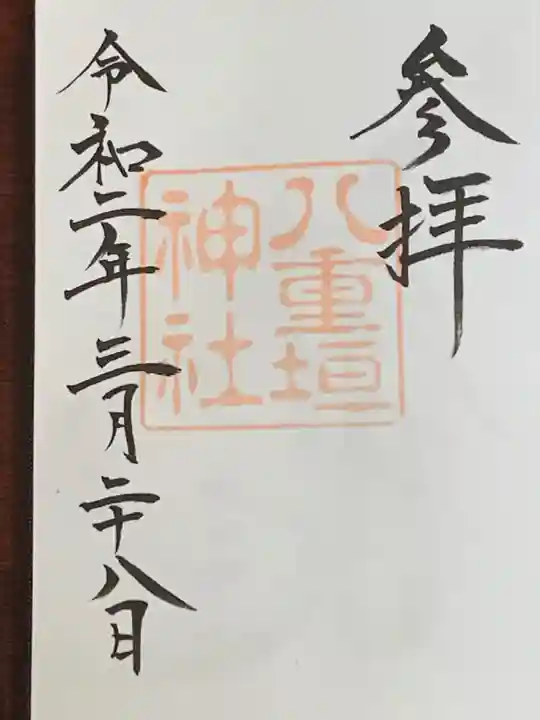 参拝
八重垣
神社
令和二年三月二十八日